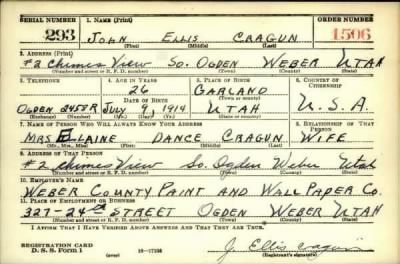 SERIAL NUMBER 1. NAME (Print) ORDER NUMBER
293 JOHN ELLIS CRAGUN 1506
(First) (Middle) (Last)
2. ADDRESS (Print)
#2 Chimes View So. OGDEN WEBER UTAH
(Number and street or R. F. D. number) (Town) (County) (State)
3. TELEPHONE 4. AGE IN YEARS 5. PLACE OF BIRTH 6. COUNTRY OF CITIZENSHIP
26 GARLAND
DATE OF BIRTH (Town or county)
OGDEN 2458R JULY 9, 1914 UTAH U.S.A.
(Exchange) (Number) (Mo.) (Day) (Yr.) (State or country)
7. NAME OF PERSON WHO WILL ALWAYS KNOW YOUR ADDRESS 8. RELATIONSHIP OF THAT PERSON
MRS ELAINE DANCE CRAGUN WIFE
(Mr., Mrs., Miss) (First) (Middle) (Last)
9. ADDRESS OF THAT PERSON
#2 Chimes View So. Ogden Weber Utah
(Number and street or R. F. D. number) (Town) (County) (State)
10. EMPLOYER'S NAME
WEBER COUNTY PAINT AND WALL PAPER CO.
11. PLACE OF EMPLOYMENT OR BUSINESS
327-24th STREET OGDEN WEBER UTAH
(Number and street or R. F. D. number) (Town) (County) (State)
I AFFIRM THAT I HAVE VERIFIED ABOVE ANSWERS AND THAT THEY ARE TRUE.
REGISTRATION CARD
D. S. S. Form 1 (over) J. Ellis Cragun
(Registrant's signature)